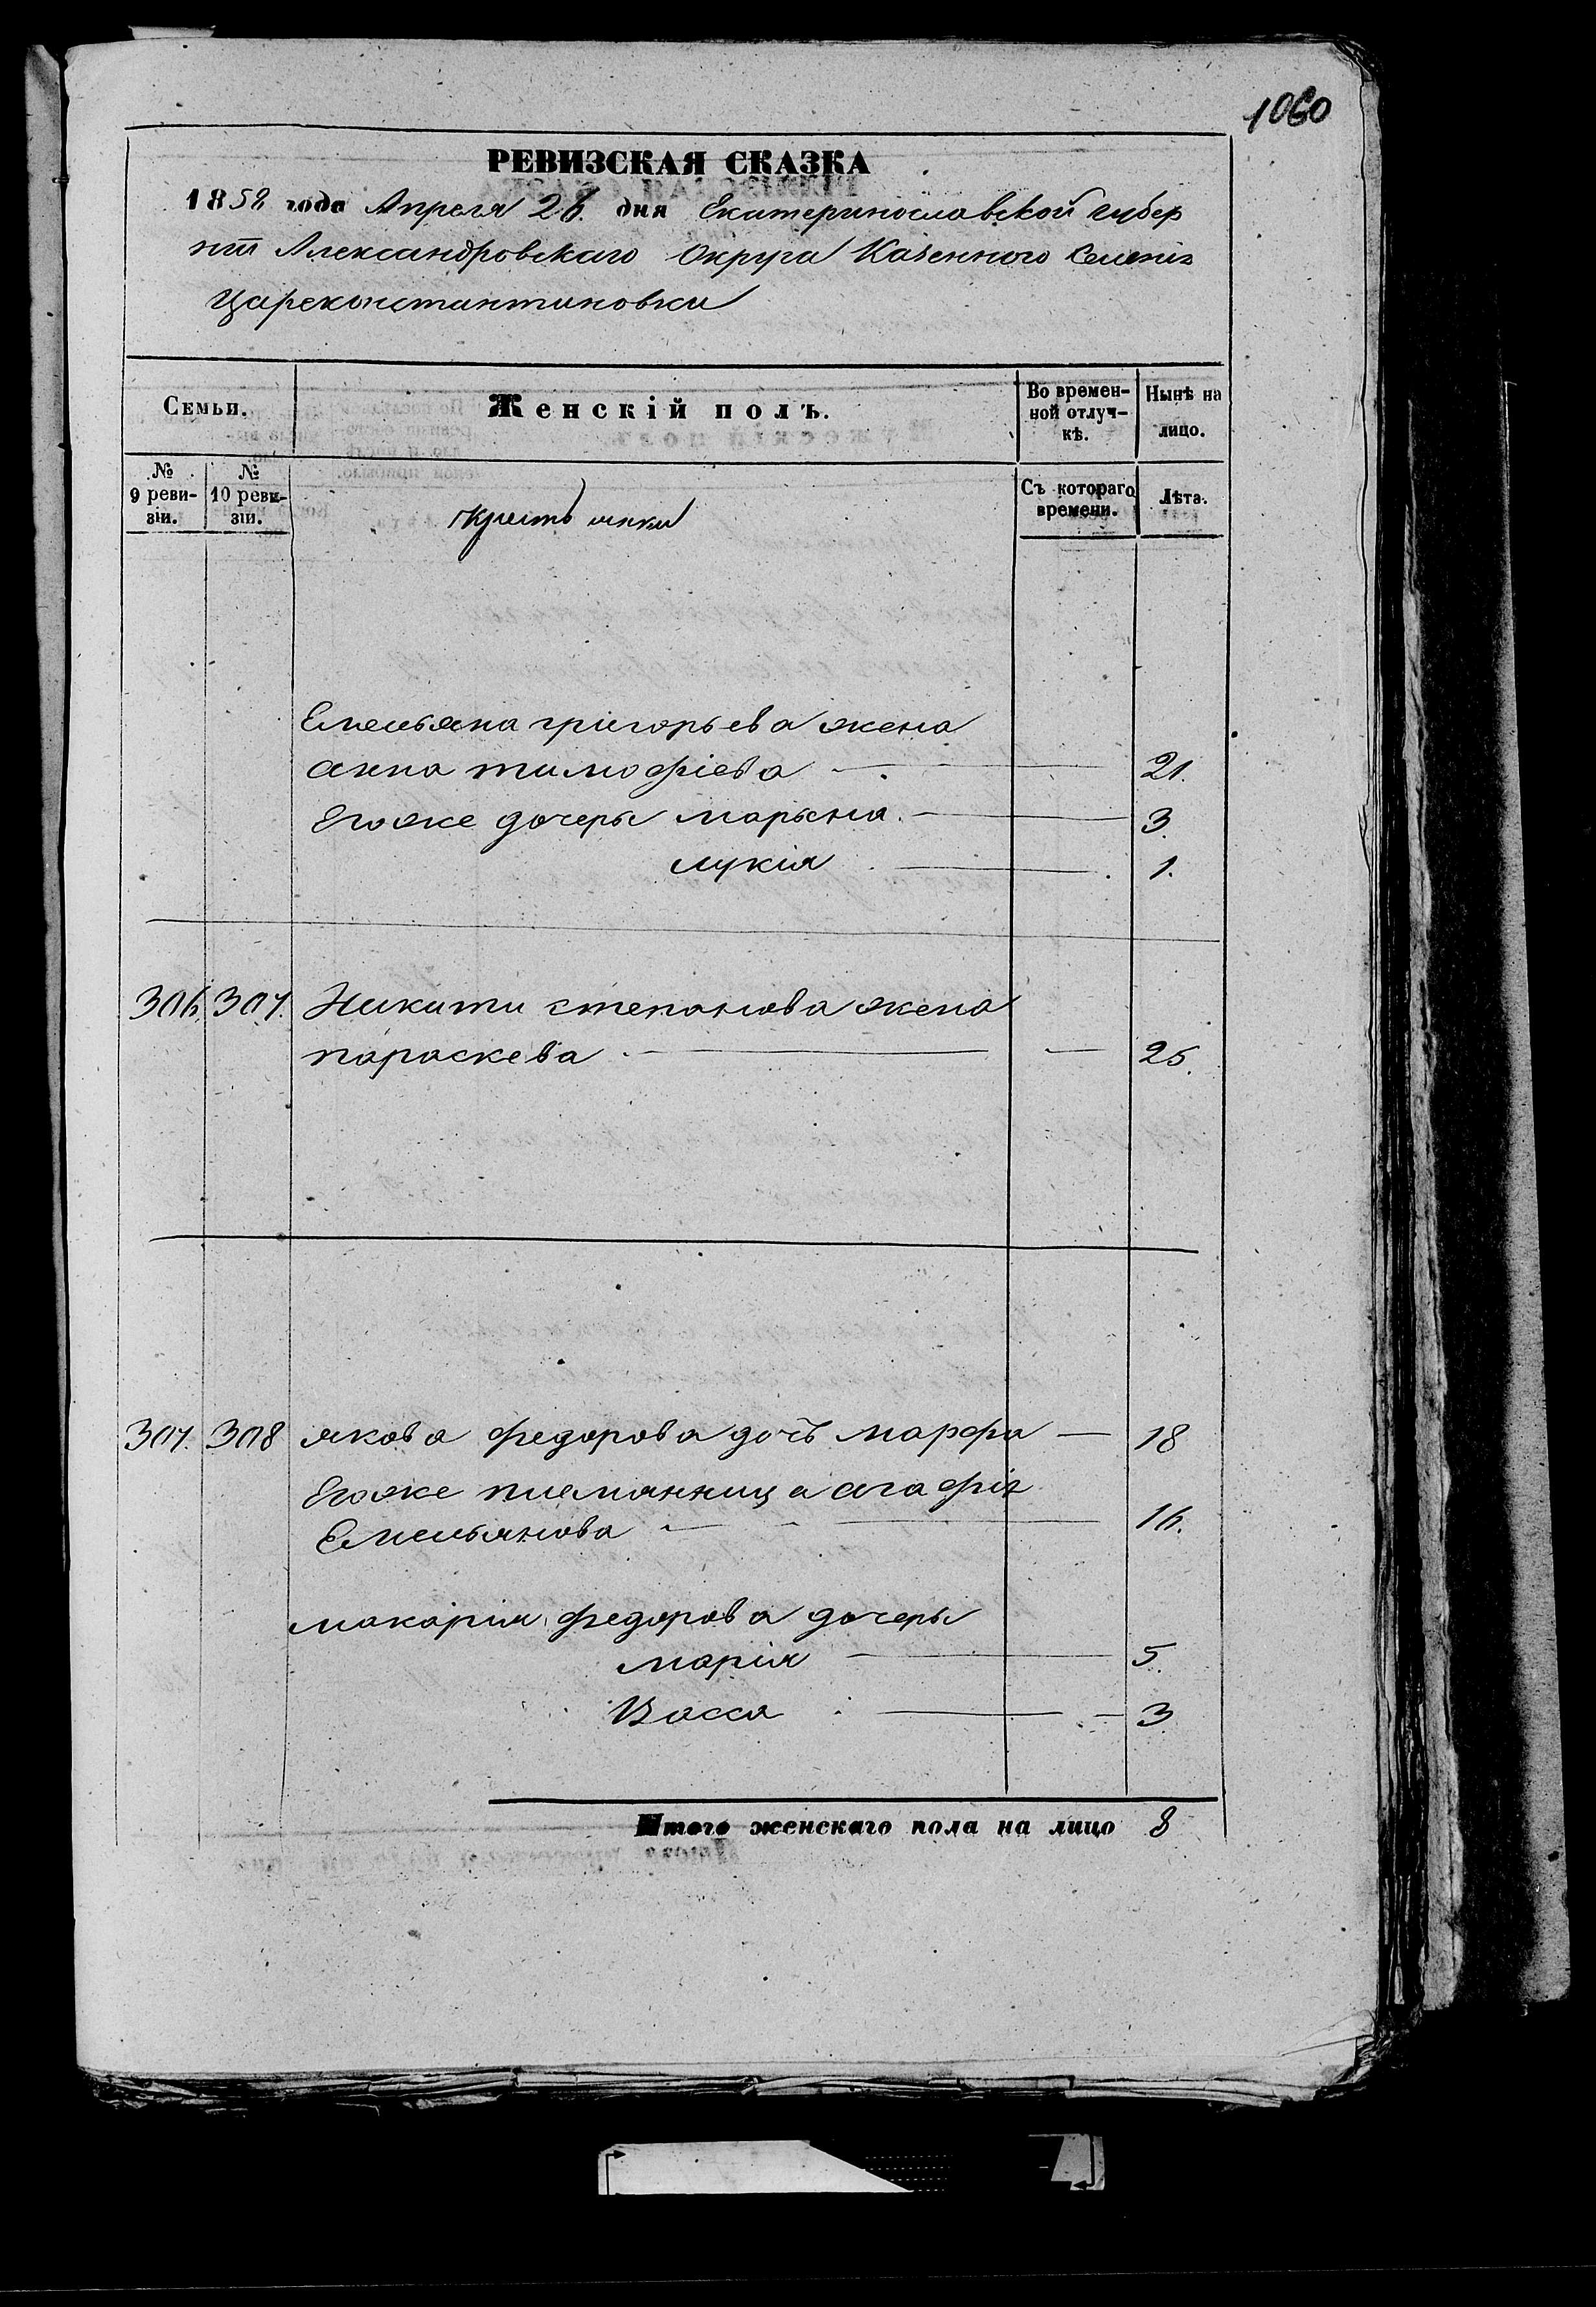 1060
РЕВИЗСКАЯ СКАЗКА
1858 года Апреля 26. дня Екатеринославской губер
ніи Александровскаго Округа Казенного Селенія
Цареконстантиновки
Семьи.
Женскій полъ.
Во времен-
ной отлуч-
кѣ.
Нынѣ на
лицо.
№
9 реви-
зіи.
№
10 реви-
зіи.
Съ котораго
времени.
Лѣта.
Крестьянки
Емельяна григорьева жена
анна тимофіева 21.
Егоже дочеры марьяна. 3.
лукія 1.
306. 307. Никиты степанова жена
параскева 25.
307. 308 якова федорова дочь марфа 18
Егоже племянница агафія
Емельянова 16.
макарія федорова дочеры
марія 5.
Васса 3
Итого женскаго пола на лицо 8